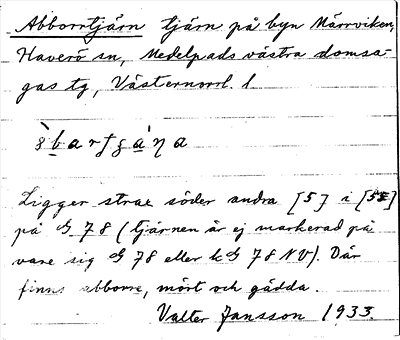 Abborrtjärn tjärn på byn Märrviken,
Haverö sn, Medelpads västra domsa-
gas tg, Västernorrl. l
Ligger strax söder andra [5] i [55]
på G 78 (tjärnen är ej markerad på
vare sig G 78 eller k G 78 NV). Där
finns abborre, mört och gädda.
Valter Jansson 1933.